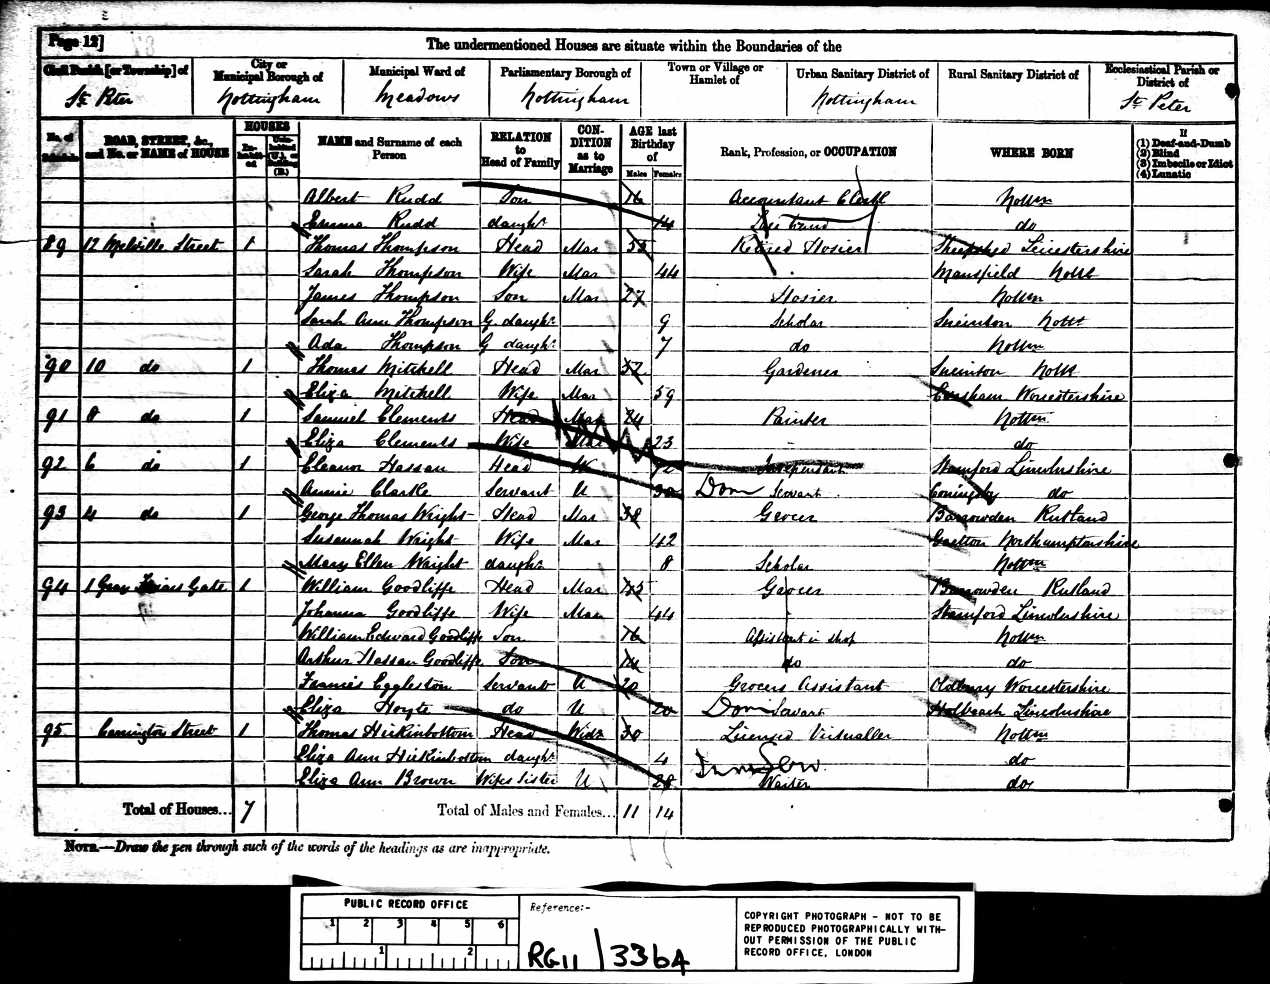 Page 12]
The undermentioned Houses are situate within the Boundaries of the
Civil Parish [or Township] of
City or Municipal Borough of
Municipal Ward of
Parliamentary Borough of
Town or Village or Hamlet of
Urban Sanitary District of
Rural Sanitary District of
Ecclesiastical Parish or District of
St. Peter Nottingham Meadows Nottingham Nottingham St. Peter
No. of Schedule
ROAD, STREET, &c., and No. or NAME of HOUSE
HOUSES
In-habit-ed
Unin-habited (U.), or Building (B.)
NAME and Surname of each Person
RELATION to Head of Family
CON-DITION as to Marriage
AGE last Birthday of
Males Females
Rank, Profession, or OCCUPATION
WHERE BORN
If
(1) Deaf-and-Dumb
(2) Blind
(3) Imbecile or Idiot
(4) Lunatic
Albert Rudd Son 16 Accountant Clerk Nottm
Emma Rudd daughr 14 do
89 12 Melville Street 1 Thomas Thompson Head Mar 53 Retired Hosier Leicestershire
Sarah Thompson Wife Mar 44 Mansfield Notts
James Thompson Son Mar 27 Hosier Nottm
Sarah Ann Thompson G. daughr 9 Scholar Sneinton Notts
Ada Thompson G daughr 7 do Nottm
90 10 do 1 Thomas Mitchell Head Mar Gardener Sneinton Notts
Eliza Mitchell Wife Mar 59 Worcestershire
91 8 do 1 Samuel Clements Head Mar 24 Painter Nottm
Eliza Clements Wife Mar 23 do
92 6 do 1 Eleanor Hassan Head W 72 Independent Stamford Lincolnshire
Annie Clarke Servant U Dom Servant Coningsby do
93 4 do 1 George Thomas Wright Head Mar 38 Grocer Barrowden Rutland
Susannah Wright Wife Mar 42 Northamptonshire
Mary Ellen Wright daughr 8 Scholar Nottm
94 1 Gray Friars Gate 1 William Goodliffe Head Mar Grocer Barrowden Rutland
Johanna Goodliffe Wife Mar 44 Stamford Lincolnshire
William Edward Goodliffe Son 16 Assistant in shop Nottm
Arthur Hassan Goodliffe Son 14 do do
Francis Eggleston Servant U 20 Grocers Assistant Oldbury Worcestershire
Eliza Hoyte do U 20 Dom Servant Holbeach Lincolnshire
95 Carrington Street 1 Thomas Hickinbottom Head Widr 30 Licensed Victualler Nottm
Eliza Ann Hickinbottom daughr 4 do
Eliza Ann Brown Wifes Sister U 28 Waiter do
Total of Houses... 7 Total of Males and Females... 11 14
NOTE.—Draw the pen through such of the words of the headings as are inappropriate.
PUBLIC RECORD OFFICE
1 2 3 4 5 6
1 2
Reference:-
RG11 / 3364
COPYRIGHT PHOTOGRAPH - NOT TO BE
REPRODUCED PHOTOGRAPHICALLY WITH-
OUT PERMISSION OF THE PUBLIC
RECORD OFFICE, LONDON